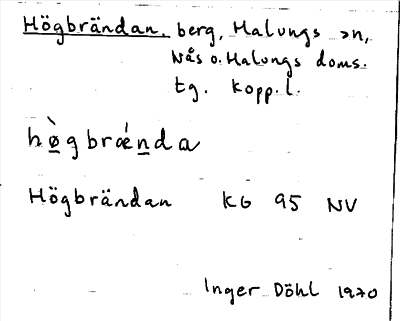 Högbrändan, berg, Malungs sn,
Nås o. Malungs doms.
tg. Kopp. l.
hò̱gbrǽn̲da
Högbrändan KG 95 NV
Inger Döhl 1970